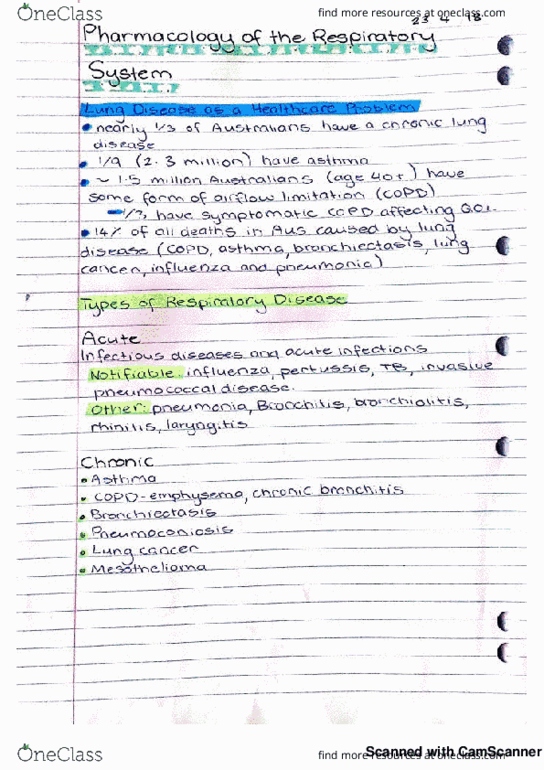 OneClass
find more resources at oneclass.com
23 4 18
Pharmacology of the Respiratory
System
Lung Disease as a Healthcare Problem
• nearly 1/3 of Australians have a chronic lung
disease
• 1/9 (2.3 million) have asthma
• ~ 1.5 million Australians (age 40+) have
some form of airflow limitation (COPD)
have symptomatic COPD affecting Q.O.L.
• 14% of all deaths in Aus caused by lung
disease (COPD, asthma, bronchiectasis, lung
cancer, influenza and pneumonia)
Types of Respiratory Disease
Acute
Infectious diseases and acute infections
Notifiable: influenza, pertussis, TB, invasive
pneumococcal disease.
Other: pneumonia, Bronchitis, bronchiolitis,
rhinitis, laryngitis
Chronic
• Asthma
• COPD - emphysema, chronic bronchitis
• Bronchiectasis
• Pneumoconiosis
• Lung cancer
• Mesothelioma
OneClass
find more resources at oneclass.com
Scanned with CamScanner